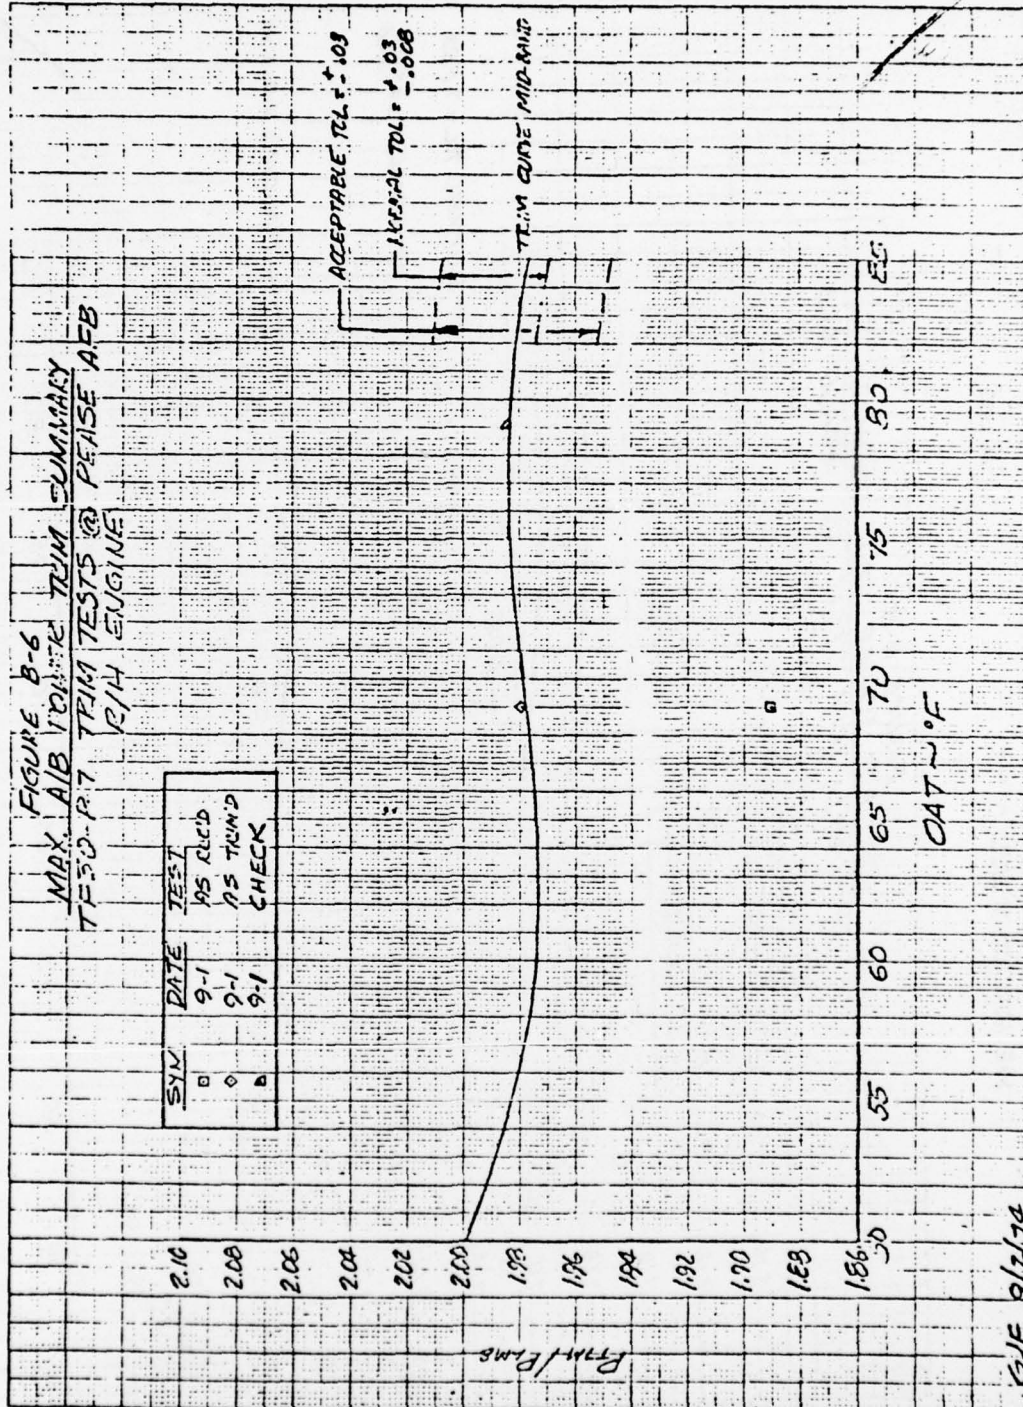 FIGURE B-6
MAX A/B POWER TRIM SUMMARY
TF30-P-7 TRIM TESTS @ PEASE AFB
R/H ENGINE
SYM DATE TEST
□ 9-1 AS REC'D
◇ 9-1 AS TRIM'D
9-1 CHECK
ACCEPTABLE TOL = ± .03
TOL = +.03
-.008
TRIM CURVE MID-BAND
2.10
2.08
2.06
2.04
2.02
2.00
1.98
1.96
1.94
1.92
1.90
1.88
1.86
50 55 60 65 70 75 80 85
OAT ~ °F